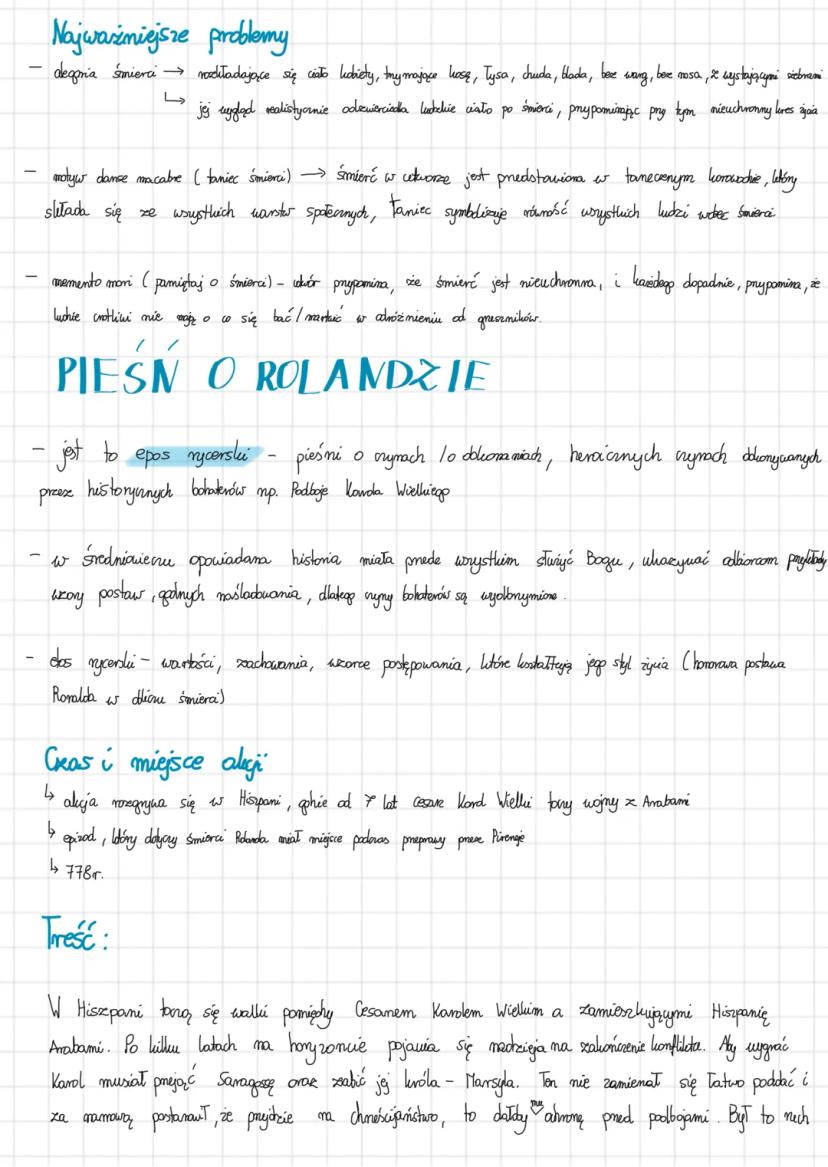 Najważniejsze problemy
- alegoria śmierci → rozkładające się ciało kobiety, trzymające kosę, łysa, chuda, blada, bez warg, bez nosa, z wystającymi żebrami
↳ jej wygląd realistycznie odzwierciedla ludzkie ciało po śmierci, przypominając przy tym nieuchronny kres życia
- motyw danse macabre (taniec śmierci) → śmierć w utworze jest przedstawiona w tanecznym korowodzie, który
składa się ze wszystkich warstw społecznych, taniec symbolizuje równość wszystkich ludzi wobec śmierci.
- memento mori (pamiętaj o śmierci) - utwór przypomina, że śmierć jest nieuchronna, i każdego dopadnie, przypomina, że
ludzie cnotliwi nie mają o co się bać/martwić w odróżnieniu od grzeszników.
PIEŚŃ O ROLANDZIE
- jest to epos rycerski - pieśni o czynach /o dokonaniach, heroicznych czynach dokonywanych
przez historycznych bohaterów np. Podboje Karola Wielkiego
- w średniowieczu opowiadana historia miała przede wszystkim służyć Bogu, ukazywać odbiorcom przykłady
wzory postaw, godnych naśladowania, dlatego czyny bohaterów są wyolbrzymione.
- etos rycerski - wartości, zachowania, wzorce postępowania, które kształtują jego styl życia (honorowa postawa
Ronalda w obliczu śmierci)
Czas i miejsce akcji
↳ akcja rozgrywa się w Hiszpani, gdzie od 7 lat cesarz Karol Wielki toczy wojny z Arabami
↳ epizod, który dotyczy śmierci Rolanda miał miejsce podczas przeprawy przez Pireneje
↳ 778r.
Treść:
W Hiszpani toczą się walki pomiędzy Cesarzem Karolem Wielkim a zamieszkującymi Hiszpanię
Arabami. Po kilku latach na horyzoncie pojawia się nadzieja na zakończenie konfliktu. Aby wygrać
Karol musiał przejąć Saragossę oraz zabić jej króla - Marsyla. Ten nie zamierzał się łatwo poddać i
za namową postanawił, że przejdzie na chrześcijaństwo, to dałoby mu ochronę przed podbojami. Był to ruch